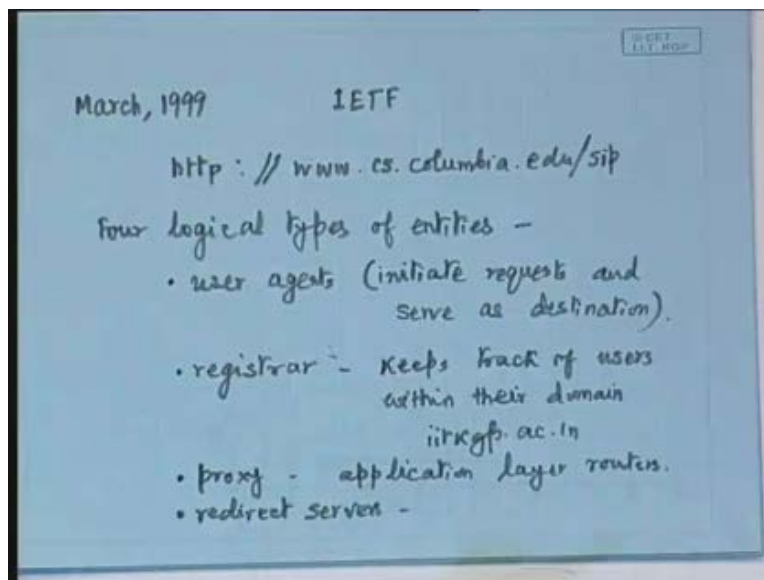 © CET
I.I.T. KGP
March, 1999 IETF
http : // www.cs.columbia.edu/sip
Four logical types of entities -
• user agents (initiate requests and
serve as destination).
• registrar - Keeps track of users
within their domain
iitkgp.ac.in
• proxy - application layer routers.
• redirect servers -